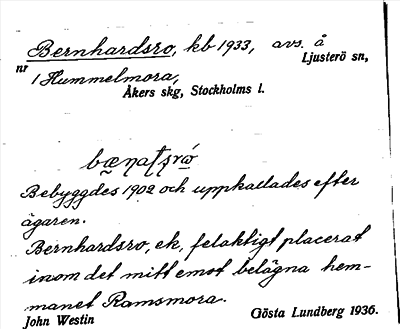 Bernhardsro, kb 1933, avs. å
Ljusterö sn,
nr 1 Hummelmora,
Åkers skg, Stockholms l.
Bebyggdes 1902 och uppkallades efter
ägaren.
Bernhardsro, ek, felaktigt placerat
inom det mitt emot belägna hem-
manet Ramsmora.
John Westin
Gösta Lundberg 1936.